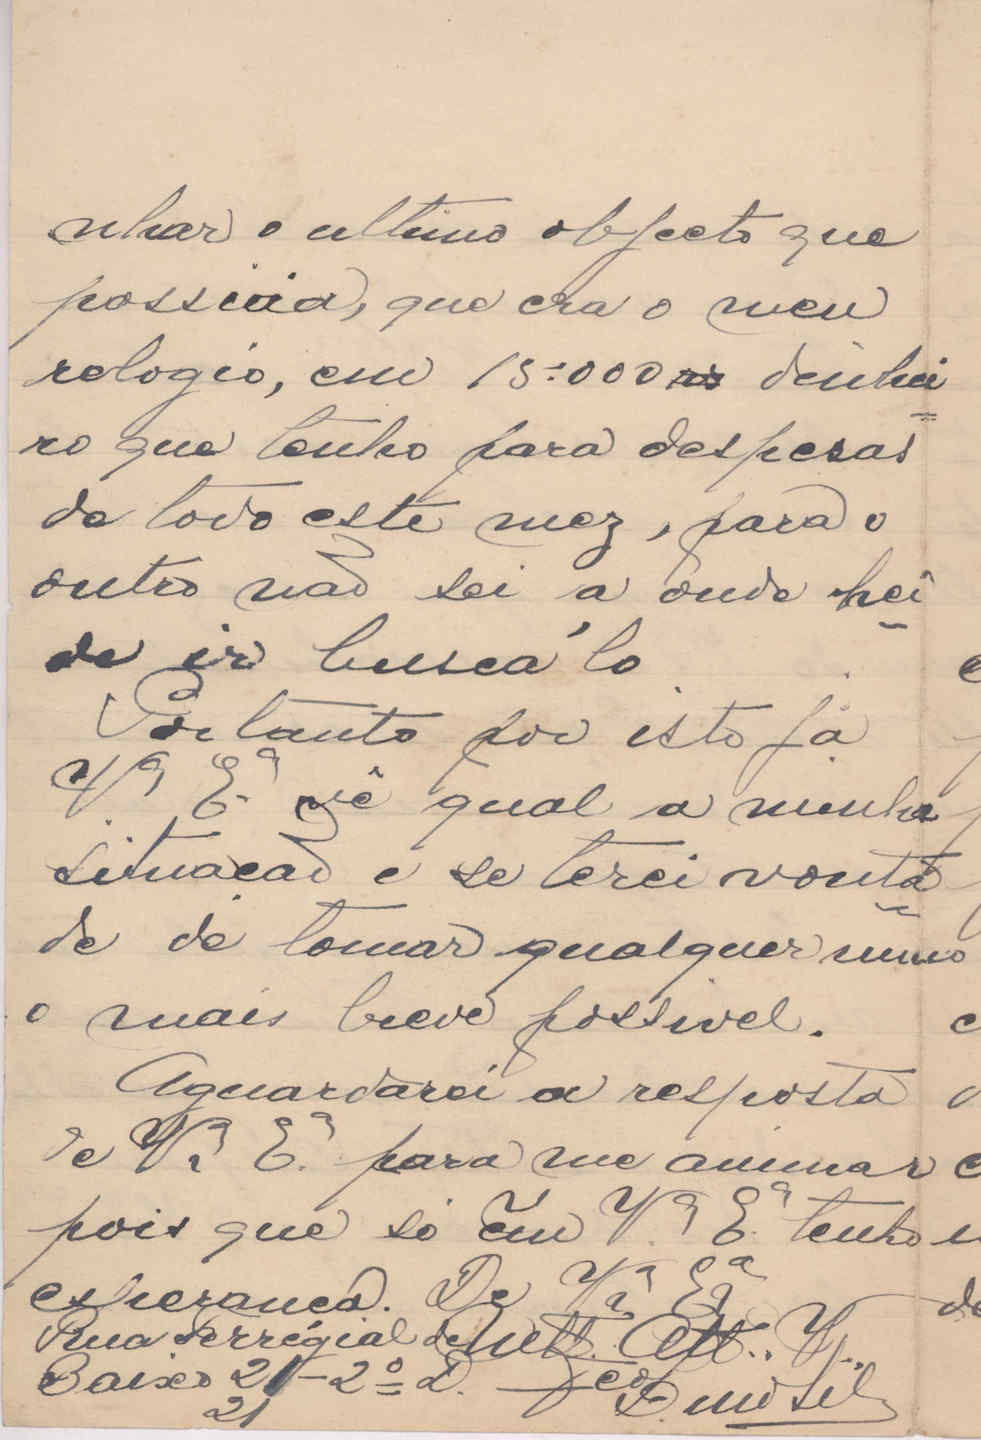 nhar o ultimo objecto que
possuia, que era o meu
relogio, em 15:000 rs dinhei
ro que tenho para despesas
de todo este mez, para o
outro não sei a onde hei
de ir buscá lo
Portanto por isto já
Vª Eª vê qual a minha
situaçaõ e se terei vonta
de de tomar qualquer rumo
o mais breve possivel.
Aguardarei a resposta
de Vª Eª para me animar
pois que só em Vª Eª tenho
esperança. De Vª Eª
Rua Ferrégial de
Baixo 21 – 2º D.
21